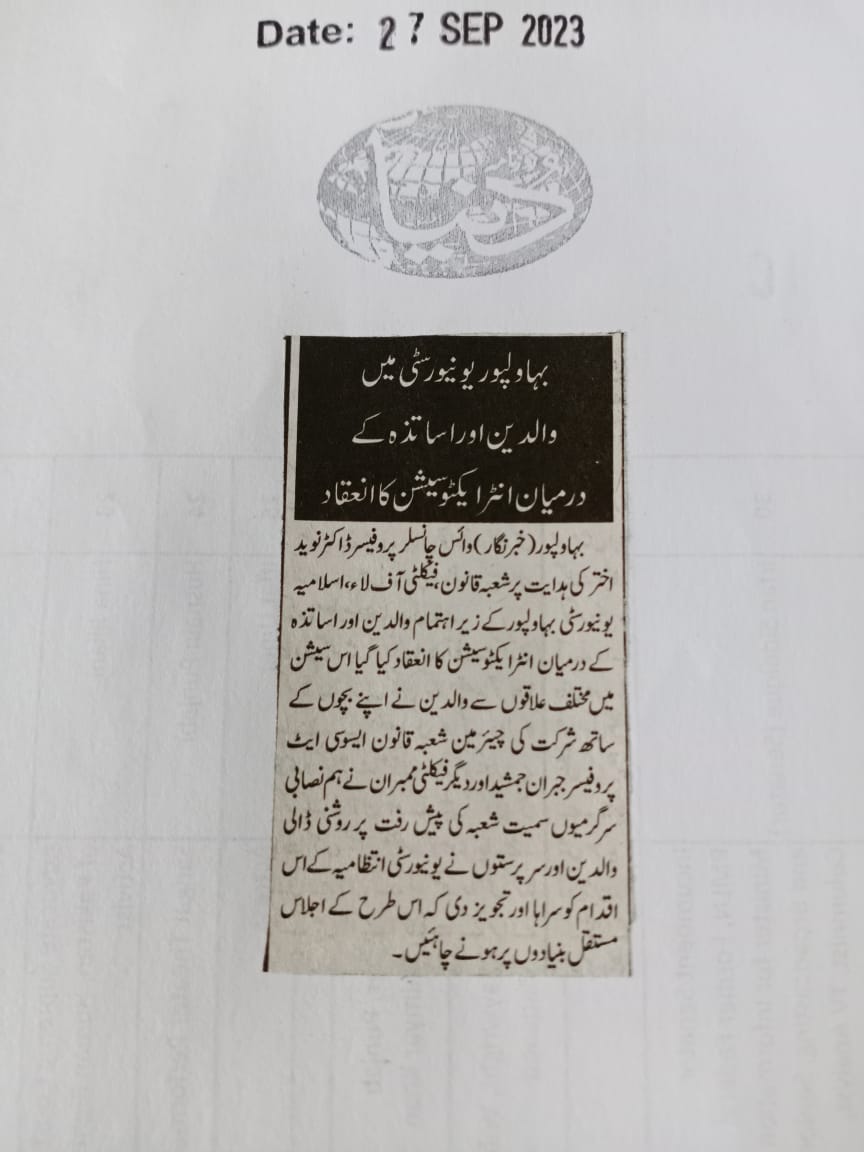 Date: 27 SEP 2023
دُنیا
بہاولپور یونیورسٹی میں
والدین اور اساتذہ کے
درمیان انٹرایکٹو سیشن کا انعقاد
بہاولپور (خبرنگار) وائس چانسلر پروفیسر ڈاکٹر نوید
اختر کی ہدایت پر شعبہ قانون، فیکلٹی آف لاء، اسلامیہ
یونیورسٹی بہاولپور کے زیر اہتمام والدین اور اساتذہ
کے درمیان انٹرایکٹو سیشن کا انعقاد کیا گیا اس سیشن
میں مختلف علاقوں سے والدین نے اپنے بچوں کے
ساتھ شرکت کی چیئرمین شعبہ قانون ایسوسی ایٹ
پروفیسر جبران جمشید اور دیگر فیکلٹی ممبران نے ہم نصابی
سرگرمیوں سمیت شعبہ کی پیش رفت پر روشنی ڈالی
والدین اور سرپرستوں نے یونیورسٹی انتظامیہ کے اس
اقدام کو سراہا اور تجویز دی کہ اس طرح کے اجلاس
مستقل بنیادوں پر ہونے چاہئیں۔